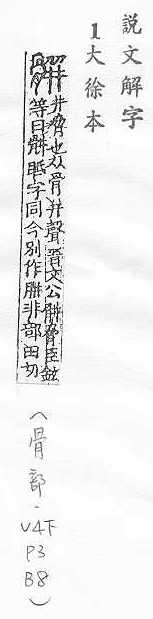 說文解字
1大徐本
骿 并脅也从骨并聲晉文公骿脅臣鉉
等曰骿胝字同今別作胼非部田切
(骨部.V4下
P3
B8)